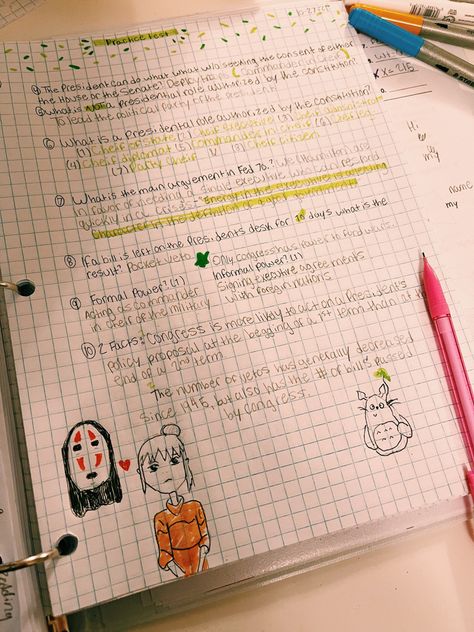 Practice Test
④ The President can do what w/o seeking the consent of either
the House or the Senate? Deploy troops (Commander in chief)
⑤ What is NOT a Presidential role authorized by the constitution?
To lead the political party of the president
⑥ What is a Presidential role authorized by the constitution?
(1) Chief of state (2) Chief executive (3)
(4) Chief diplomat (5) Commander in chief (6) Chief leg.
(7) Party Chief (8) Chief Citizen
⑦ What is the main argument in Fed 70? We (Hamilton) are
in favor of needing a single executive who can respond
quickly in a crisis. "Energy in the executive is a leading
character in the definition of a good government"
⑧ If a bill is left on the Presidents desk for 10 days what is the
result? Pocket veto
Only congress has power to fund wars.
⑨ Formal Power? (1)
Acting as commander
in chief of the military
Informal Power? (1)
Signing executive agreements
with foreign nations
⑩ 2 Facts: Congress is more likely to act on a Presidents
policy proposal at the begging of a 1st term than at the
end of a 2nd term
The number of vetos has generally decreased
since 1945, but also has the # of bills passed
by congress.
Hi
my
name
my